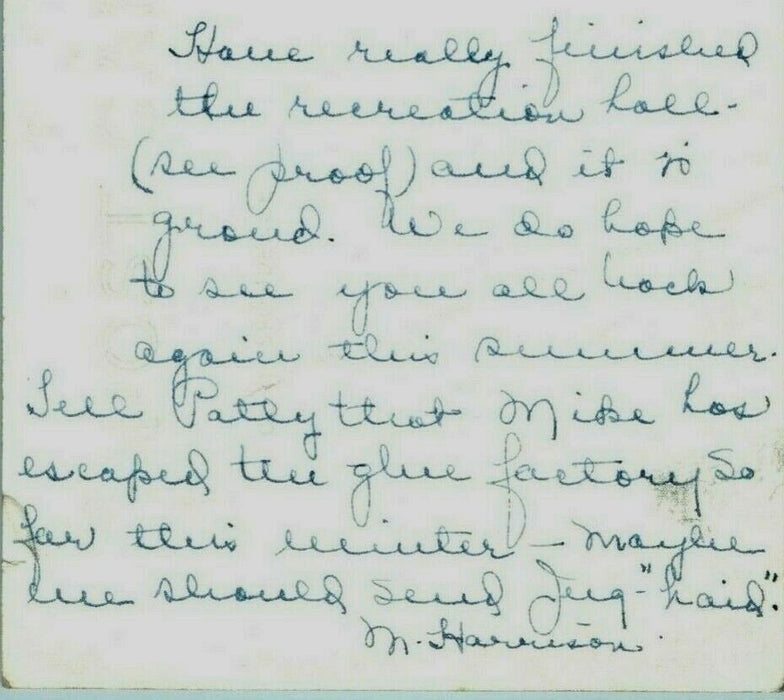 Have really finished
the recreation hall -
(see proof) and it is
grand. We do hope
to see you all back
again this summer.
Tell Patty that Mike has
escaped the glue factory so
far this winter - Maybe
we should send Jug-"haid".
M. Harrison.